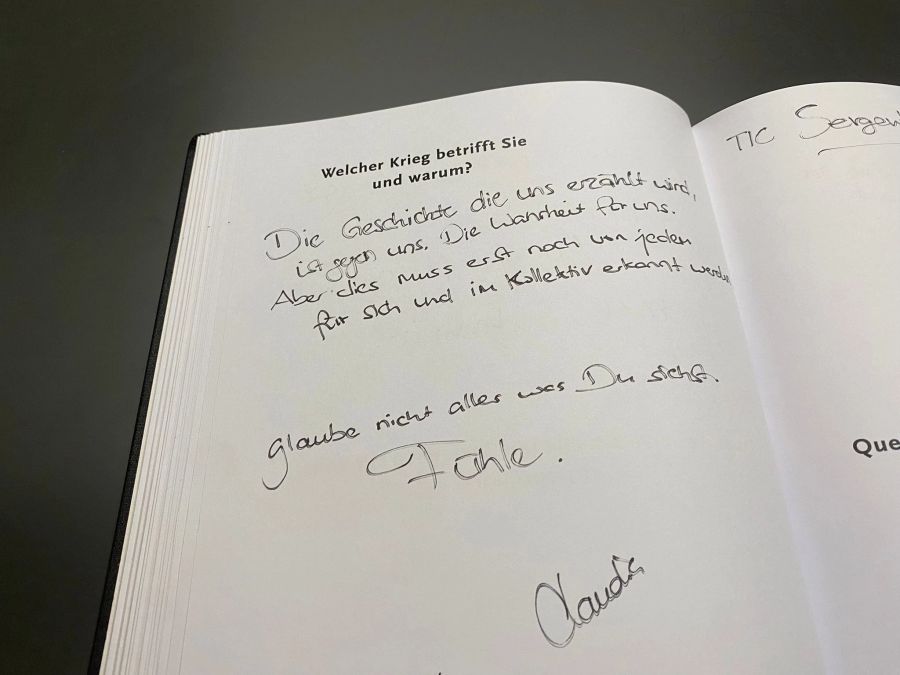 Welcher Krieg betrifft Sie
und warum?
Die Geschichte die uns erzählt wird,
ist gegen uns. Die Wahrheit für uns.
Aber dies muss erst noch von jeden
für sich und im Kollektiv erkannt werden
glaube nicht alles was Du siehst.
Fühle.
Claudia
TIC
Que